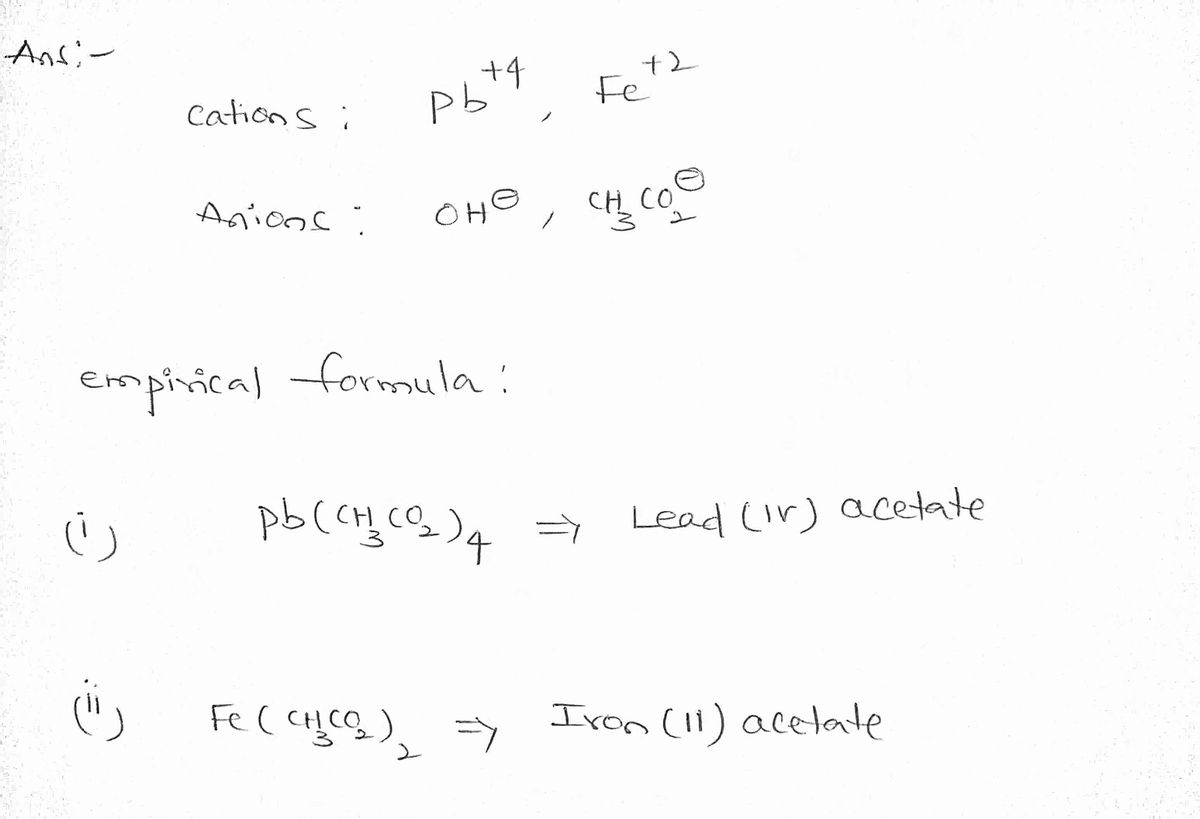 Ans:-
Cations : Pb⁺⁴, Fe⁺²
Anions : OH⊖, CH₃CO₂⊖
empirical formula:
(i) Pb(CH₃CO₂)₄ ⇒ Lead (IV) acetate
(ii) Fe(CH₃CO₂)₂ ⇒ Iron (II) acetate